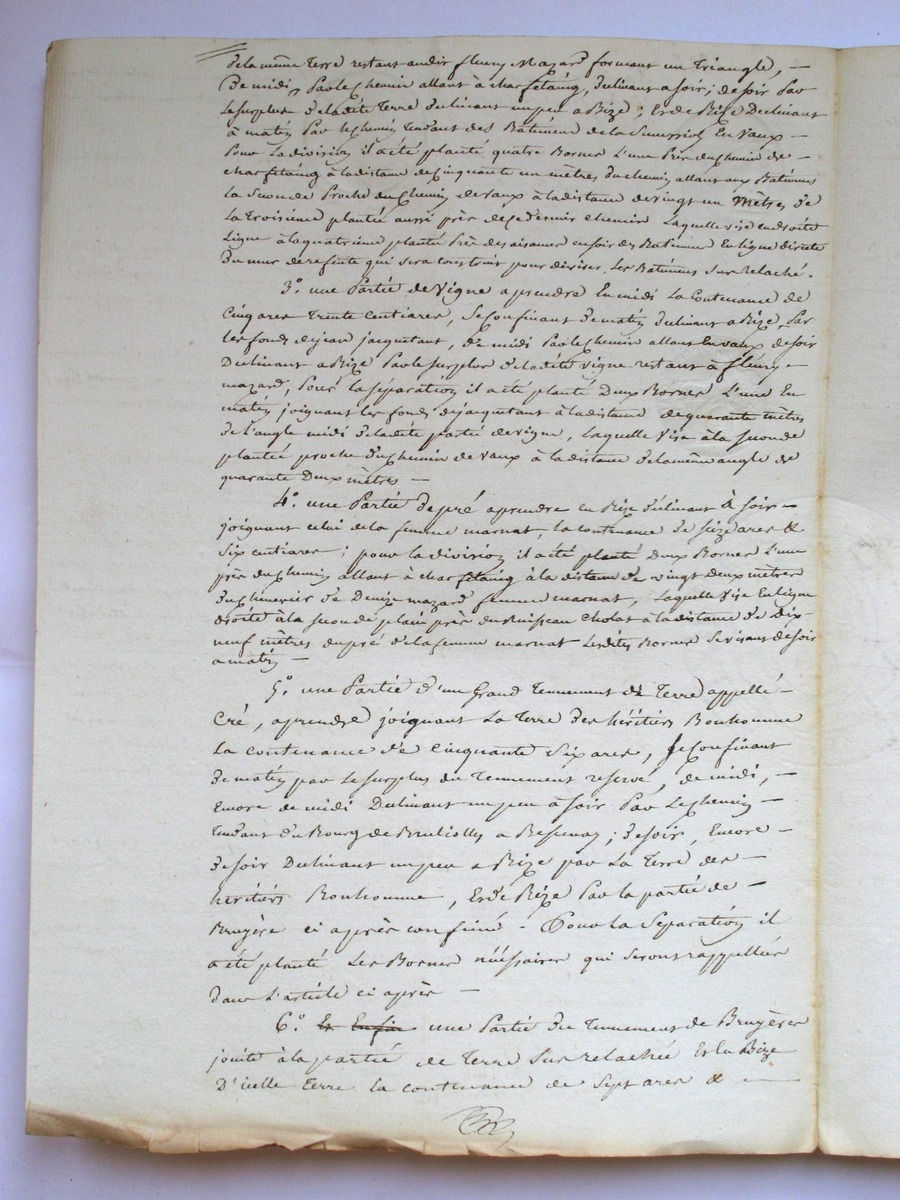 de la même Terre restant audit fleury Mazard formant un Triangle, —
De midi, Par le Chemin allant à charfetaing, declinant a soir; de soir Par
le surplus de la dite Terre declinant un peu a Bize; Et de Bize Declinant
à matin Par le chemin Tendant des Batiment de la En Vaux —
Pour La division il a été planté quatre Bornes L'une Près du Chemin de —
charfetaing à la distance de Cinquante un mètres du chemin allant aux Batimens
la Seconde Proche du Chemin de vaux à la distance de vingt un Mètres de
La Troisième plantée aussi près de ce dernier chemin Laquelle vise en droite
Ligne à la quatrième plantée Près des aisances en soir des Batimens En ligne directe
Du mur de refente qui sera construit pour diviser Les Batimens Sus relaché.
3.° une Partie de Vigne a prendre En midi La Contenance de
Cinq ares Trente Centiares, Se Confinant De matin declinant a Bize Par
les fonds de jean jacquetant, de midi Par le Chemin allant En vaux de soir
Declinant a Bize Par le surplus de la dite vigne restant à fleury —
mazard, Pour la séparation il a été planté Deux Bornes L'une En
matin joignant les fonds de jacquetant à la distance de quarante mètres
de L'angle midi de la dite partie de vigne, Laquelle Vise à la seconde
plantée proche du Chemin de vaux à la distance de la même angle de
quarante Deux mètres —
4.° une Partie de pré a prendre en Bize declinant à Soir —
joignant celui de la femme marnat, la contenance de seize ares &
Six centiares; pour la division il a été planté deux Bornes L'une
près du Chemin allant à charfetaing à la distance de vingt deux mètres
du de Denize mazard femme marnat, Laquelle Vise En ligne
droite à la seconde près du Ruisseau Cholat à la distance de dix
neuf mètres du pré de la femme marnat Les dites Bornes Se visant de soir
a matin —
5.° une Partie d'un Grand Tennement de Terre appellé —
Cré, a prendre joignant La Terre des héritiers Bonhomme
la contenance de cinquante Six ares, Se confinant
De matin par le surplus du Tennement reservé, de midi, —
Encore de midi Declinant un peu à soir Par Le Chemin —
Tendant du Bourg de Brullioles a Bessenay; de soir, Encore —
de soir Declinant un peu a Bize par La Terre des —
heritiers Bonhomme, Et de Bize Par la partie de —
Bruyère ci après confiné - Pour la Séparation il
a été planté Les Bornes nécessaires qui seront rappellées
dans L'article ci après —
6.° Et Enfin une Partie du Tennement de Bruyères
jointe à la partie de Terre Sus relachée Et En Bize
D'icelle Terre la contenance de Sept ares & —